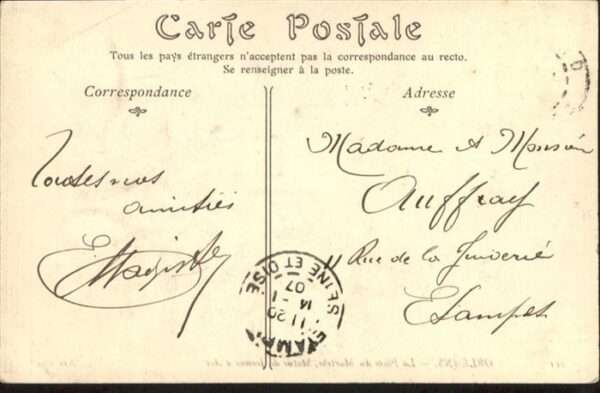 Carte Postale
Tous les pays étrangers n'acceptent pas la correspondance au recto.
Se renseigner à la poste.
Correspondance
Adresse
Toutes nos
amitiés
Madame et Monsieur
Auffray
11 Rue de la Juiverie
Etampes
ETAMPES
11 20
14 - 1
07
SEINE ET OISE
ORLÉANS. - La Place du